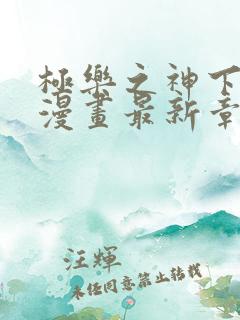 極樂之神下
漫畫最新章
汪輝
未經同意禁止轉載